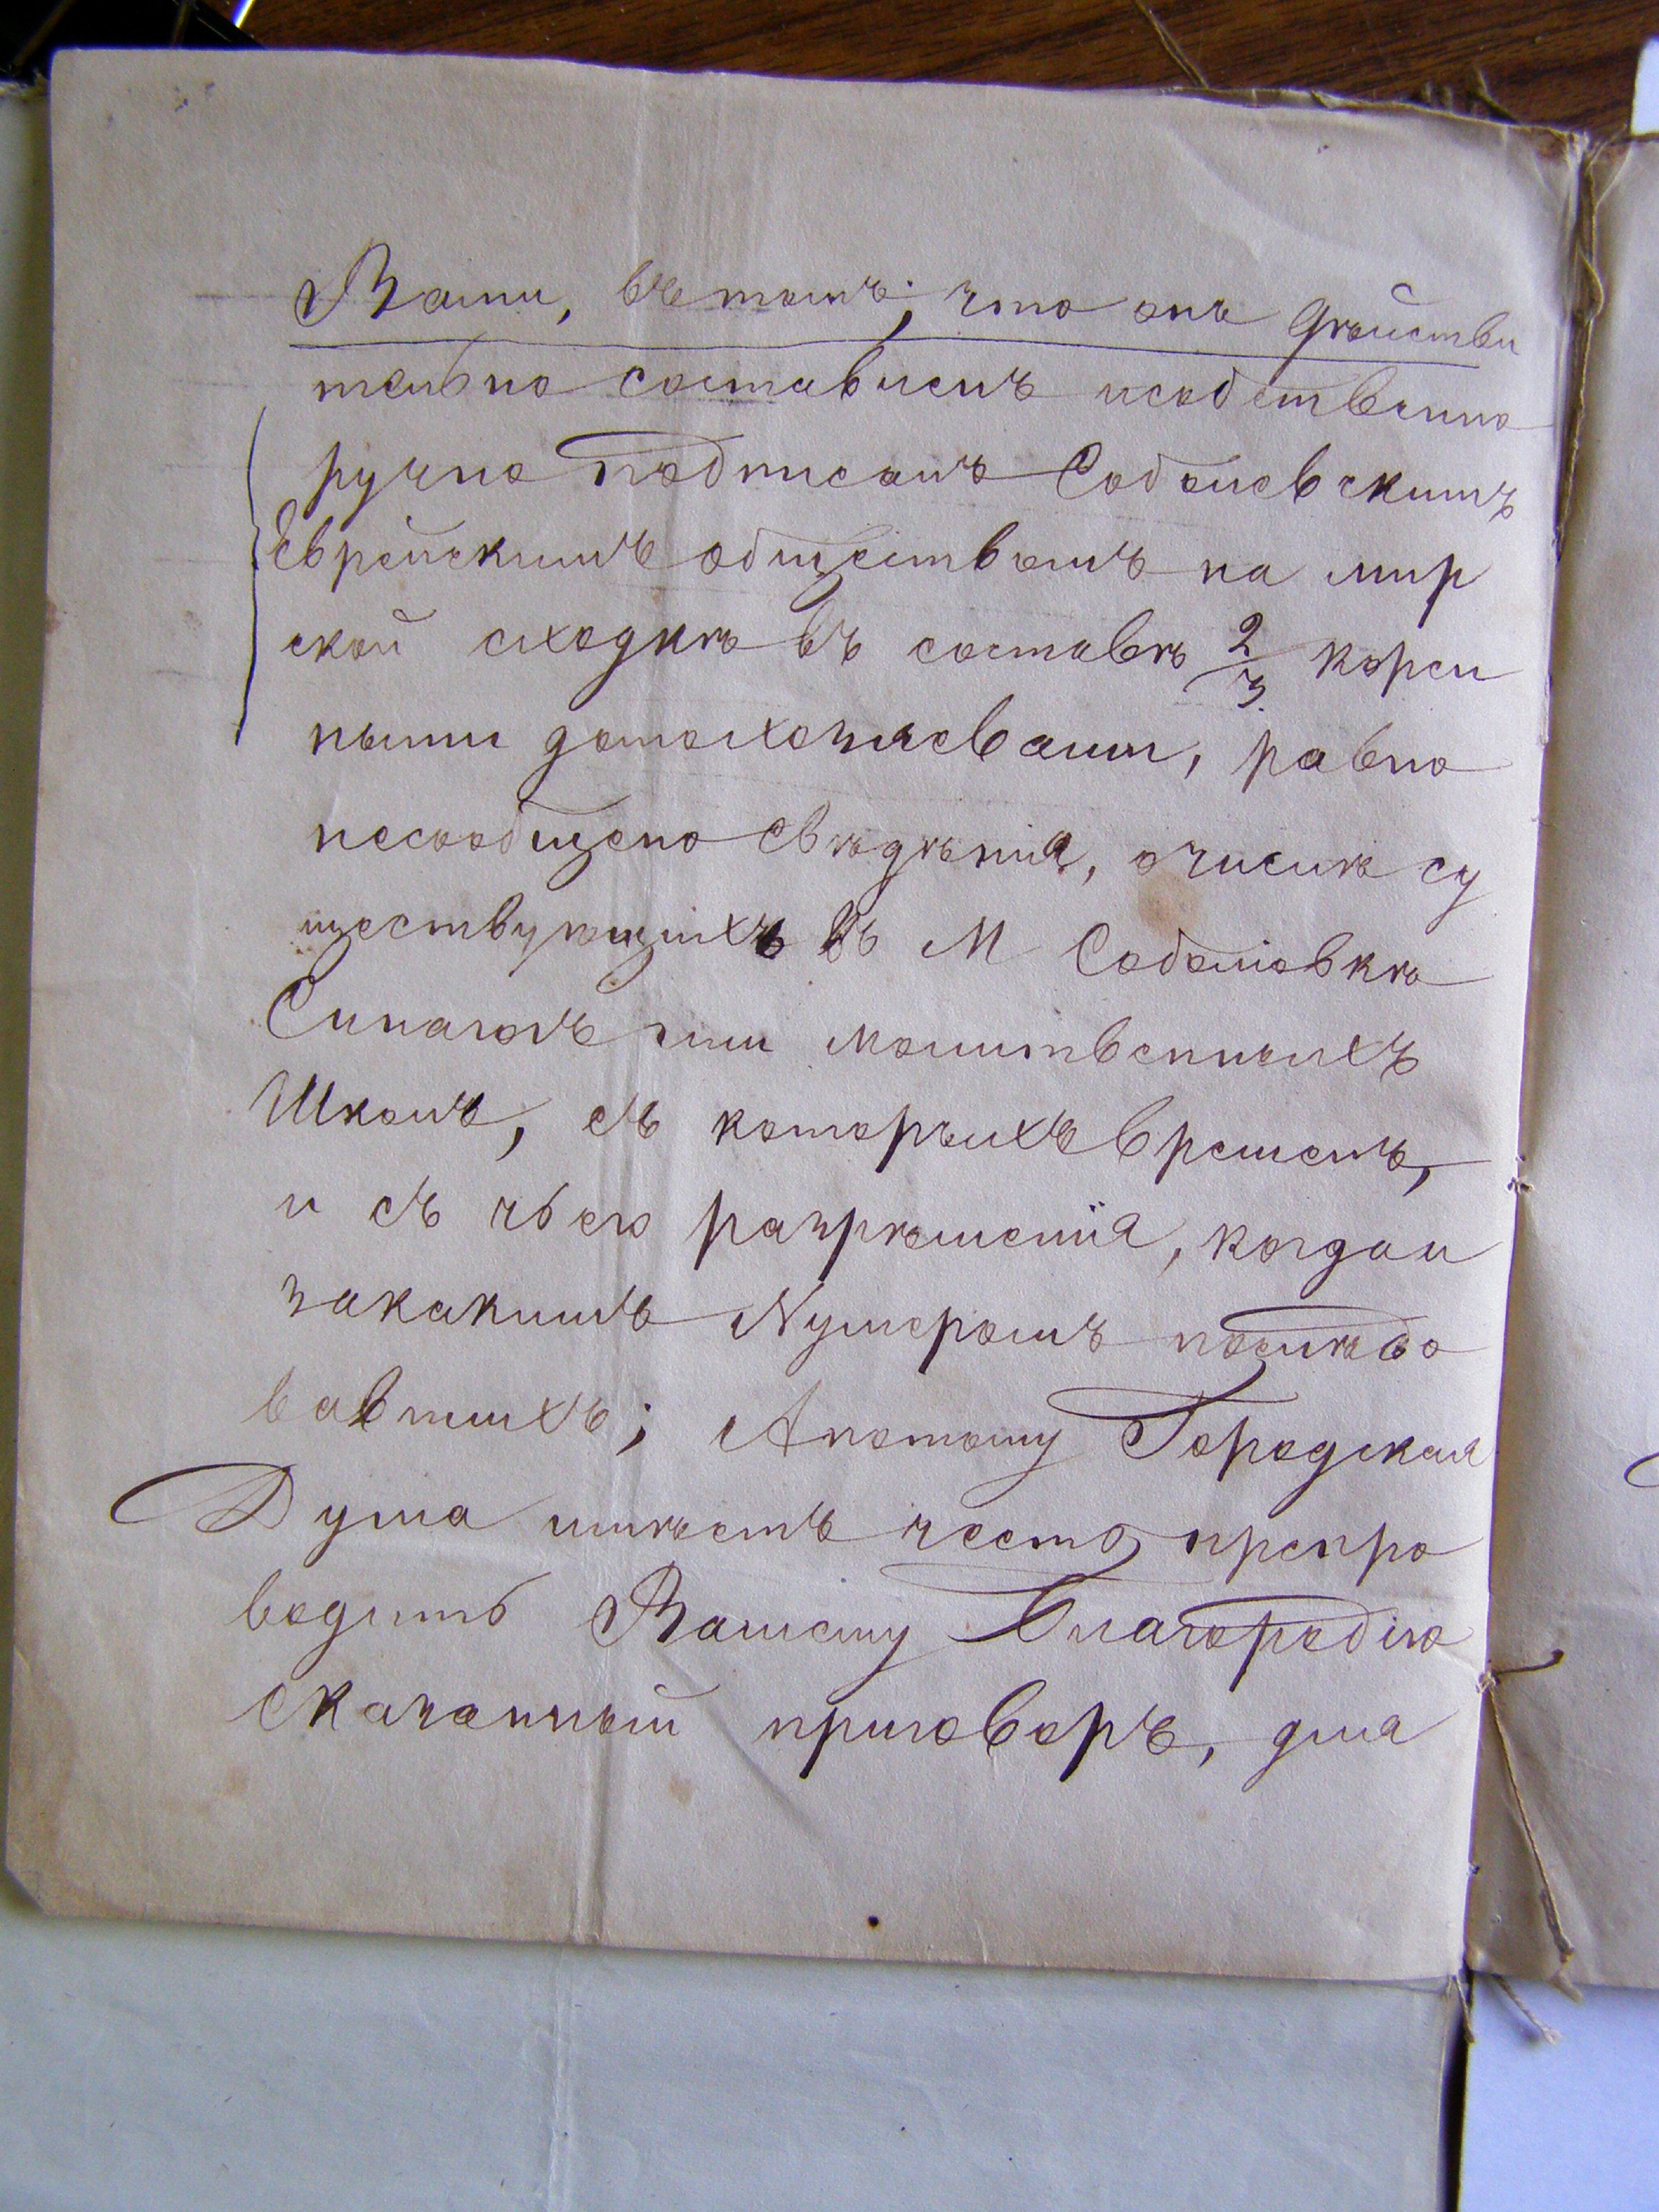 Вами, въ томъ; что онъ дѣйстви
тельно составленъ исобственно
ручно подписанъ Соболевскимъ
Еврейскимъ обществомъ на мир
ской сходкѣ въ составѣ 2/3 корен
ными домохозяевами, равно
несообщено свѣдѣнія, очислѣ су
ществующихъ въ М Соболовкѣ
Синагогъ или молитвенныхъ
Школъ, съ которыхъ временъ,
и съ чьего разрѣшенія, когда и
закакимъ Нумеромъ послѣдо
вавшихъ; Апотому Городская
Дума имѣетъ честь препро
водить Вашему Благородію
сказанный приговоръ, для